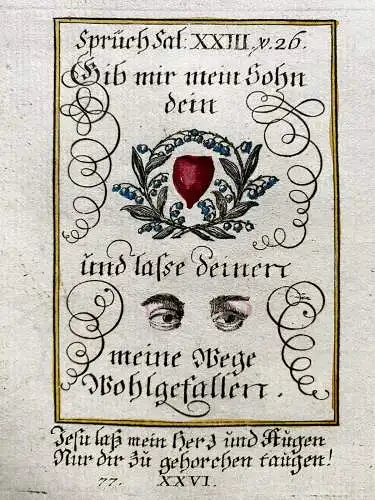 Sprüch Sal: XXIII. v. 26.
Gib mir mein Sohn
dein
und lasse deinen
meine Wege
Wohlgefallen.
Jesu laß mein Herz und Augen
Nur dir zu gehorchen taugen!
77. XXVI.